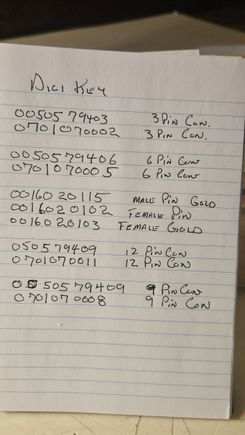 DIGI KEY
0050579403 3 PIN CON.
0701070002 3 PIN CON.
0050579406 6 PIN CON
0701070005 6 PIN CON
0016020115 MALE PIN GOLD
0016020102 FEMALE PIN
0016020103 FEMALE GOLD
050579409 12 PIN CON
0701070011 12 PIN CON
0050579409 9 PIN CON
0701070008 9 PIN CON